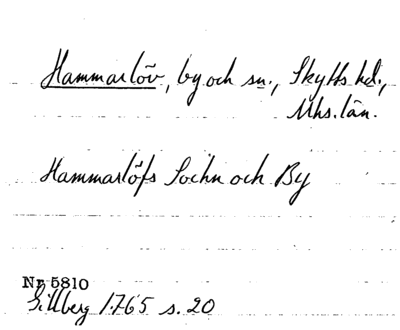 Hammarlöv, by och sn., Skytts hd.,
Mhs. län.
Hammarlöfs Sochn och By
Nr 5810
Gillberg 1765 s. 20